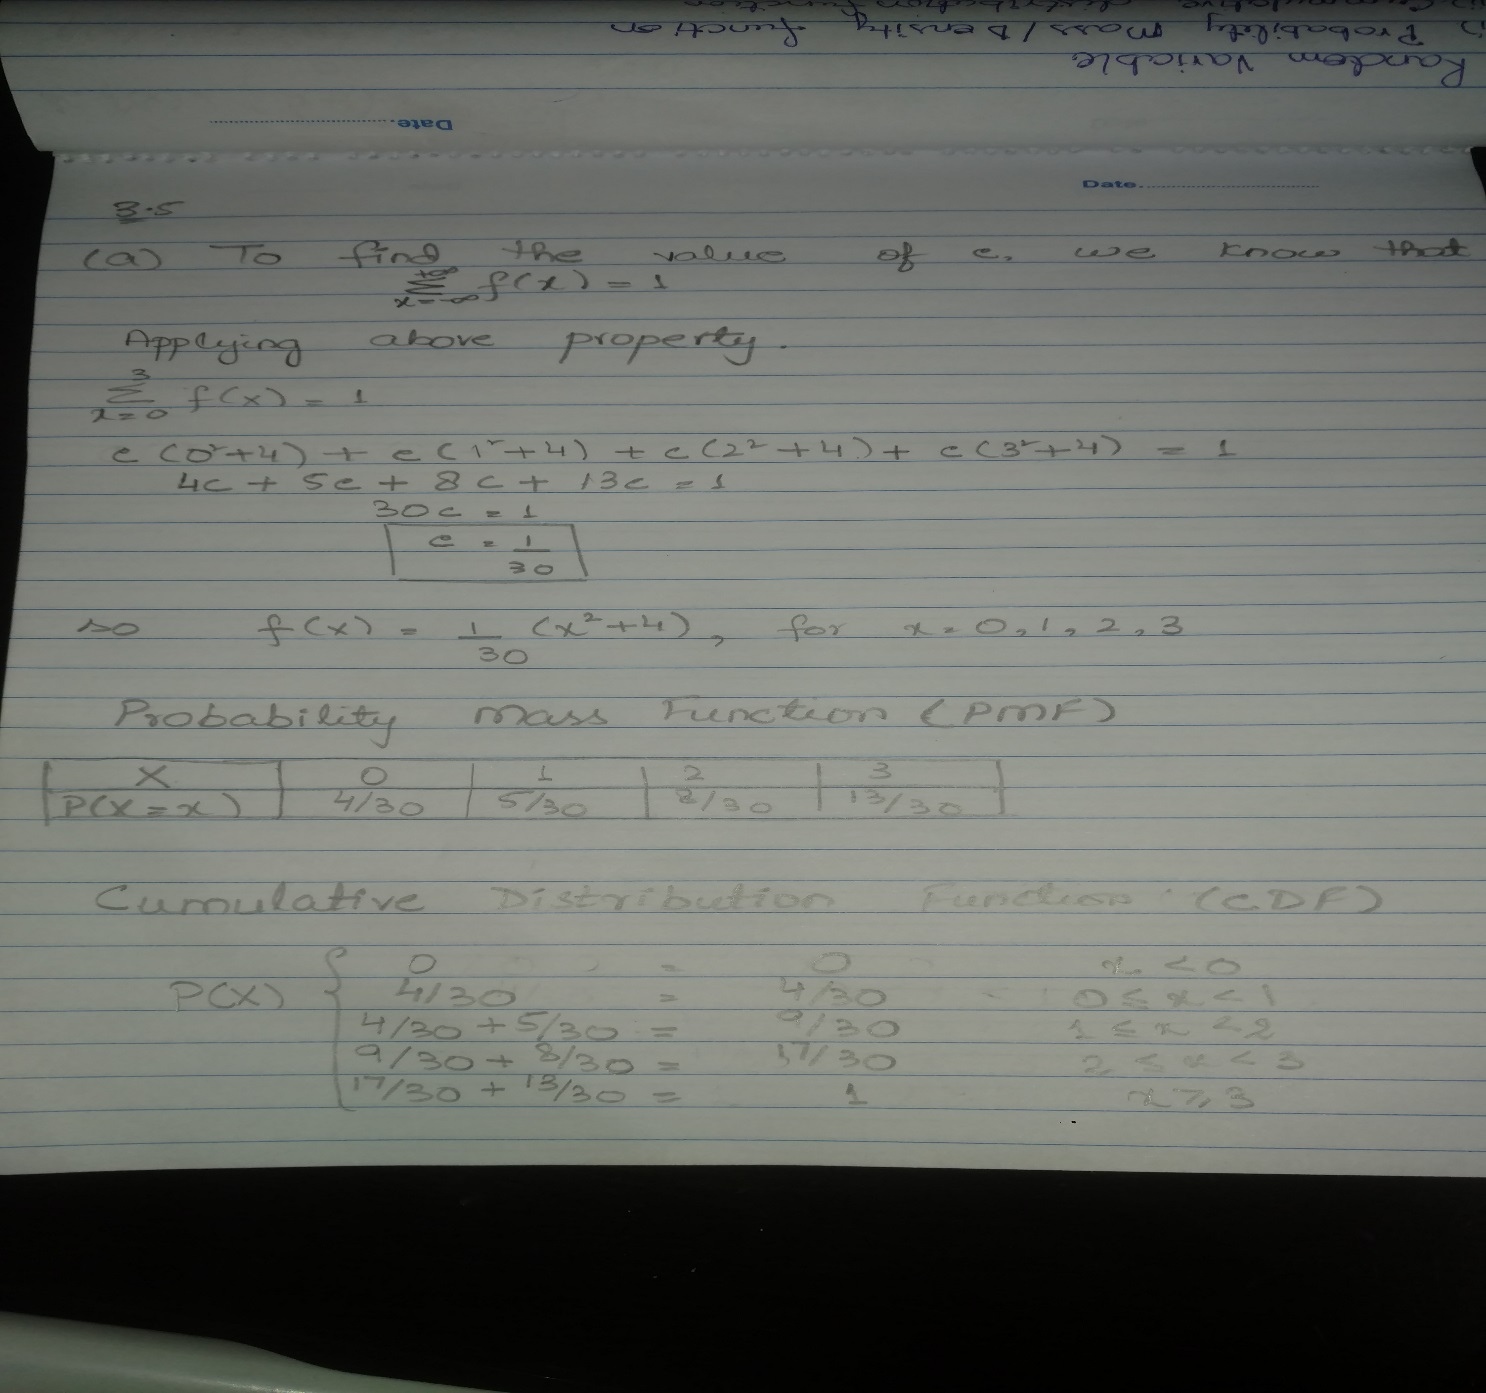 ii) Cummulative distribution function
i) Probability Mass/Density function
Random Variable
Date.
Date.
3.5
(a) To find the value of c, we know that
+∞ Σ x=-∞ f(x) = 1
Applying above property.
3 Σ x=0 f(x) = 1
c(0²+4) + c(1²+4) + c(2²+4) + c(3²+4) = 1
4c + 5c + 8c + 13c = 1
30c = 1
c = 1/30
so f(x) = 1/30 (x²+4), for x = 0,1,2,3
Probability Mass Function (PMF)
X 0 1 2 3
P(X=x) 4/30 5/30 8/30 13/30
Cumulative Distribution Function (CDF)
0 = 0 x < 0
P(X) { 4/30 = 4/30 0 ≤ x < 1
4/30 + 5/30 = 9/30 1 ≤ x < 2
9/30 + 8/30 = 17/30 2 ≤ x < 3
17/30 + 13/30 = 1 x ≥ 3